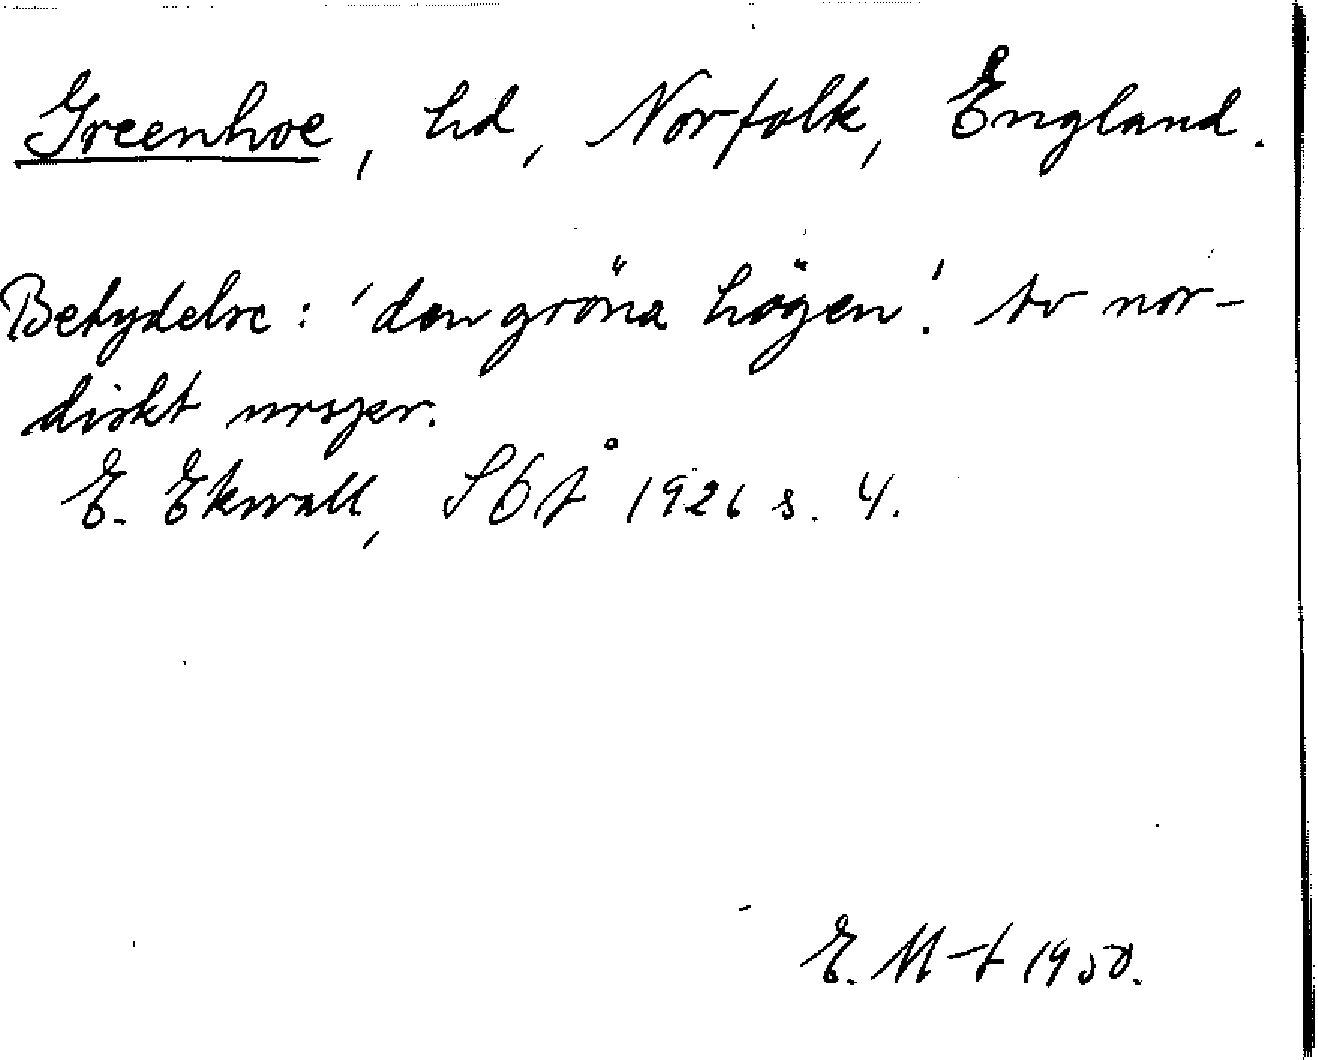 Greenhoe, hd, Norfolk, England.
Betydelse: 'den gröna högen'. Av nor-
diskt urspr.
E. Ekwall, SOÅ 1926 s. 4.
E. M-t 1950.